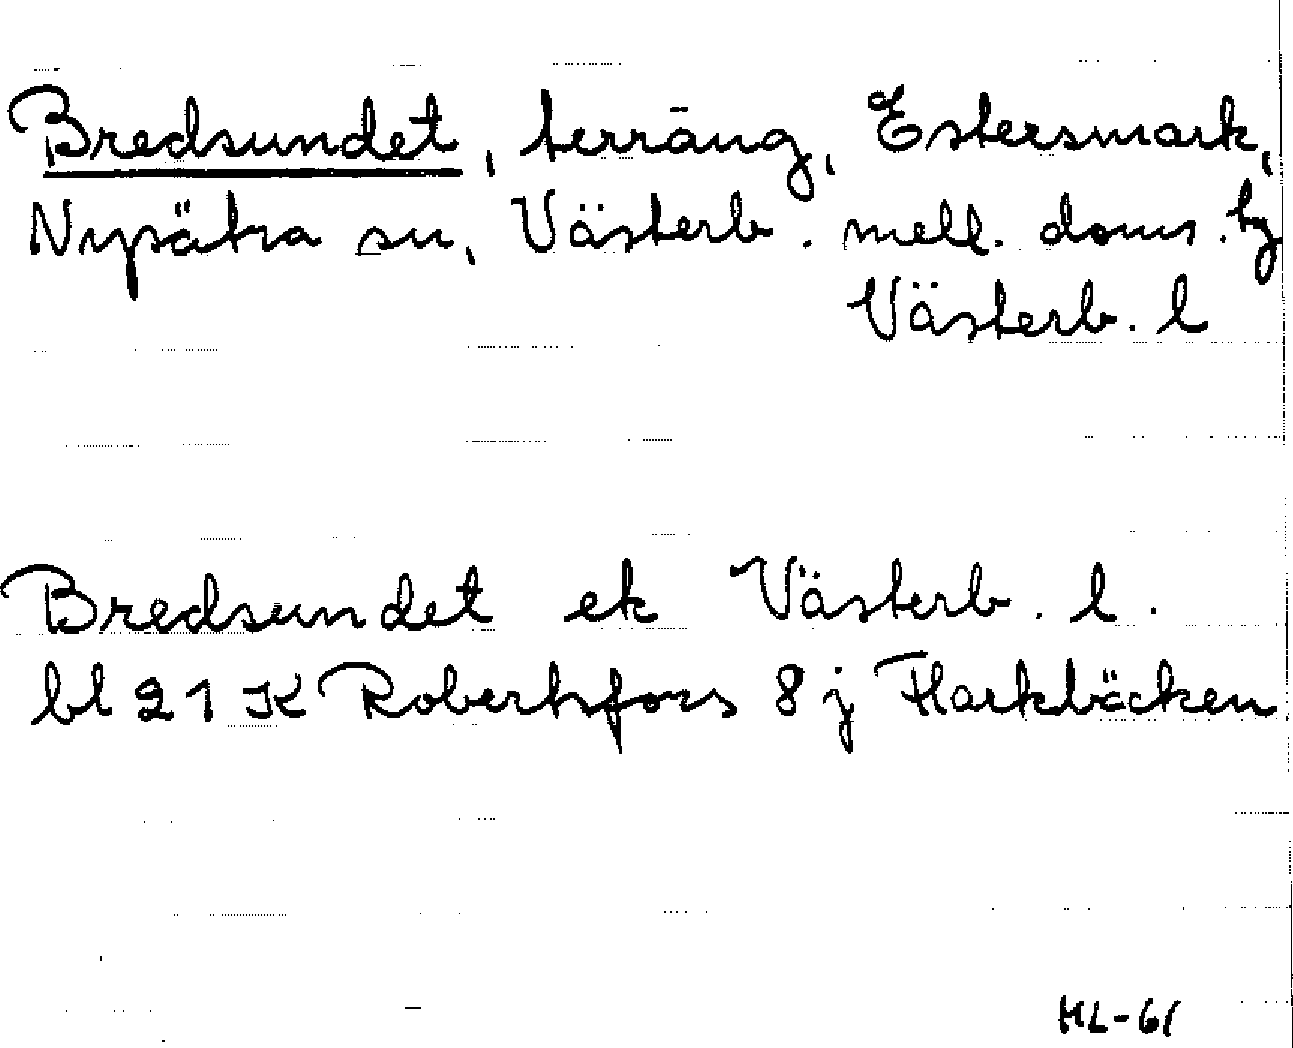 Bredsundet, terräng, Estersmark,
Nysätra sn, Västerb. mell. doms. tg
Västerb. l
Bredsundet ek Västerb. l.
bl 21 K Robertsfors 8 j Flarkbäcken
HL-61